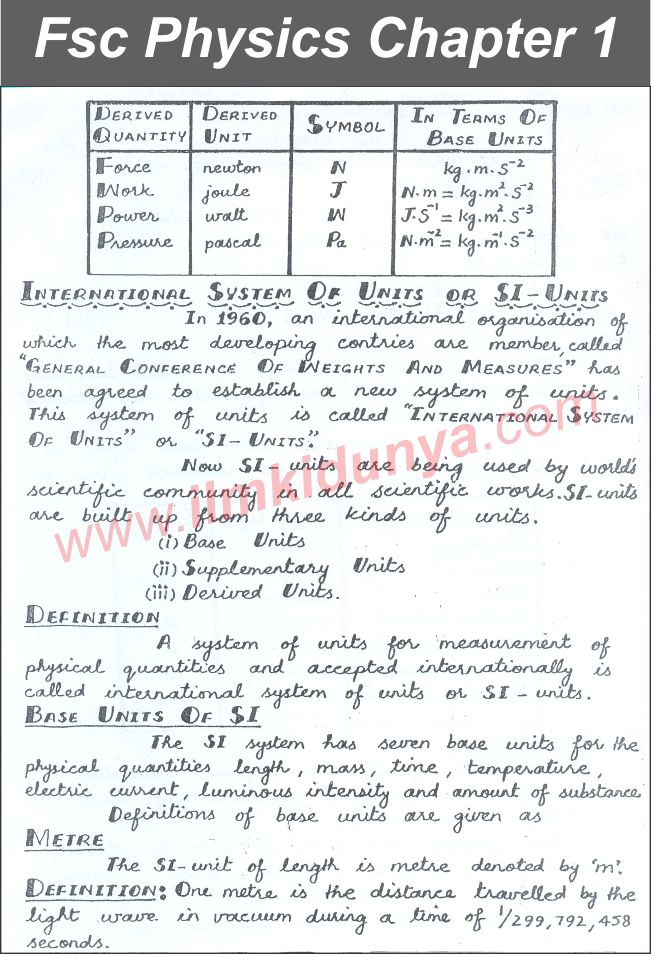 Fsc Physics Chapter 1
DERIVED QUANTITY DERIVED UNIT SYMBOL IN TERMS OF BASE UNITS
Force newton N kg.m.S⁻²
Work joule J N.m = kg.m².S⁻²
Power watt W J.S⁻¹ = kg.m².S⁻³
Pressure pascal Pa N.m⁻² = kg.m⁻¹.S⁻²
INTERNATIONAL SYSTEM OF UNITS OR SI-UNITS
In 1960, an international organisation of
which the most developing contries are member, called
"GENERAL CONFERENCE OF WEIGHTS AND MEASURES" has
been agreed to establish a new system of units.
This system of units is called "INTERNATIONAL SYSTEM
OF UNITS" or "SI-UNITS".
Now SI-units are being used by world's
scientific community in all scientific works. SI-units
are built up from three kinds of units.
(i) Base Units
(ii) Supplementary Units
(iii) Derived Units.
www.ilmkidunya.com
DEFINITION
A system of units for measurement of
physical quantities and accepted internationally is
called international system of units or SI-units.
BASE UNITS OF SI
The SI system has seven base units for the
physical quantities length, mass, time, temperature,
electric current, luminous intensity and amount of substance
Definitions of base units are given as
METRE
The SI-unit of length is metre denoted by 'm'.
DEFINITION: One metre is the distance travelled by the
light wave in vacuum during a time of 1/299,792,458
seconds.